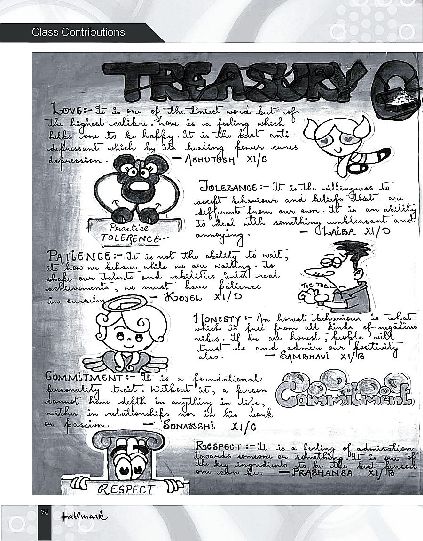 Class Contributions
TREASURY O
LOVE:- It is one of the finest word but of
the highest calibre. Love is a feeling which
helps one to be happy. It is the best anti
depressant which by its healing power cures
depression. — ASHUTOSH XI/C
TOLERANCE:- It is the willingness to
accept behaviour and beliefs that are
different from our own. It is an ability
to deal with something unpleasant and
annoying. — LAIBA XI/D
Practice
TOLERENCE
PATIENCE:- It is not the ability to wait,
it how we behave while we are waiting. to
achievements, we must have patience
— KOJEL XI/D
HONESTY:- An honest behaviour is what
which is free from all kinds of negative
If we are honest, people will
trust us and admire our
also. — SAMBHAVI XI/B
COMMITMENT:- It is a foundational
personality trait without it, a person
cannot have depth in anything in life,
neither in relationships nor in his work
or passion. — SONAKSHI XI/C
Commitment
RESPECT:- It is a feeling of admiration
towards someone or something. It is one of
the key ingredients to be the best person
one can be. — PRABHANSA XI/B
RESPECT
hallmark